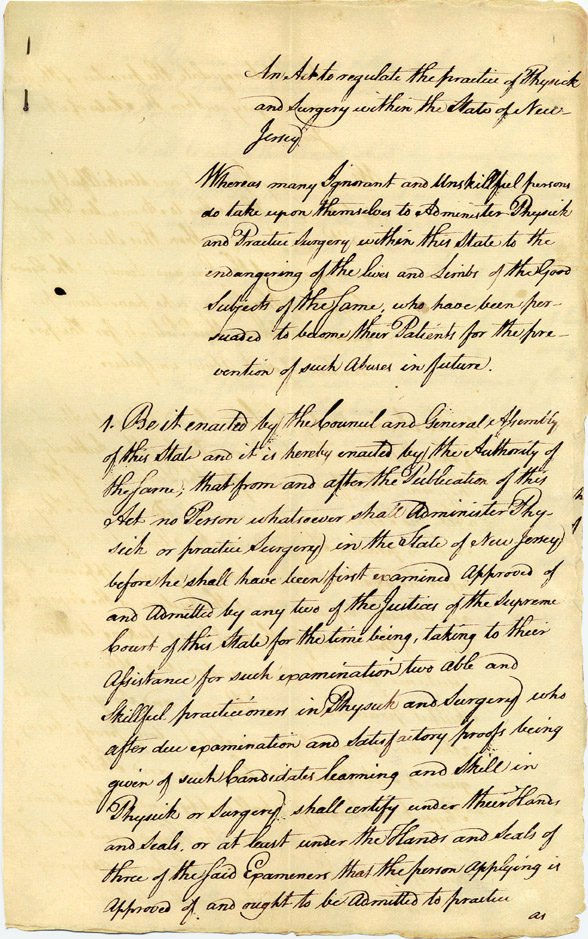 An Act to regulate the practice of Physick
and Surgery within the State of New-
Jersey
Whereas many Ignorant and Unskillful persons
do take upon themselves to Administer Physick
and Practice Surgery within this State to the
endangering of the lives and Limbs of the Good
Subjects of the Same, who have been per-
suaded to become their Patients for the pre-
vention of such Abuses in future.
1. Be it enacted by the Council and General Assembly
of this State and it is hereby enacted by the Authority of
the Same, that from and after the Publication of this
Act no Person whatsoever shall Administer Phy-
sick or practice Surgery in the State of New Jersey
before he shall have been first examined Approved of
and Admitted by any two of the Justices of the Supreme
Court of this State for the time being, taking to their
Assistance for such examination two Able and
Skillful practicioners in Physick and Surgery who
after due examination and Satisfactory proofs being
given of such Candidates learning and Skill in
Physick or Surgery shall certify under their Hands
and Seals, or at least under the Hands and Seals of
three of the said Exameners that the person Applying is
Approved of, and ought to be Admitted to practice
as